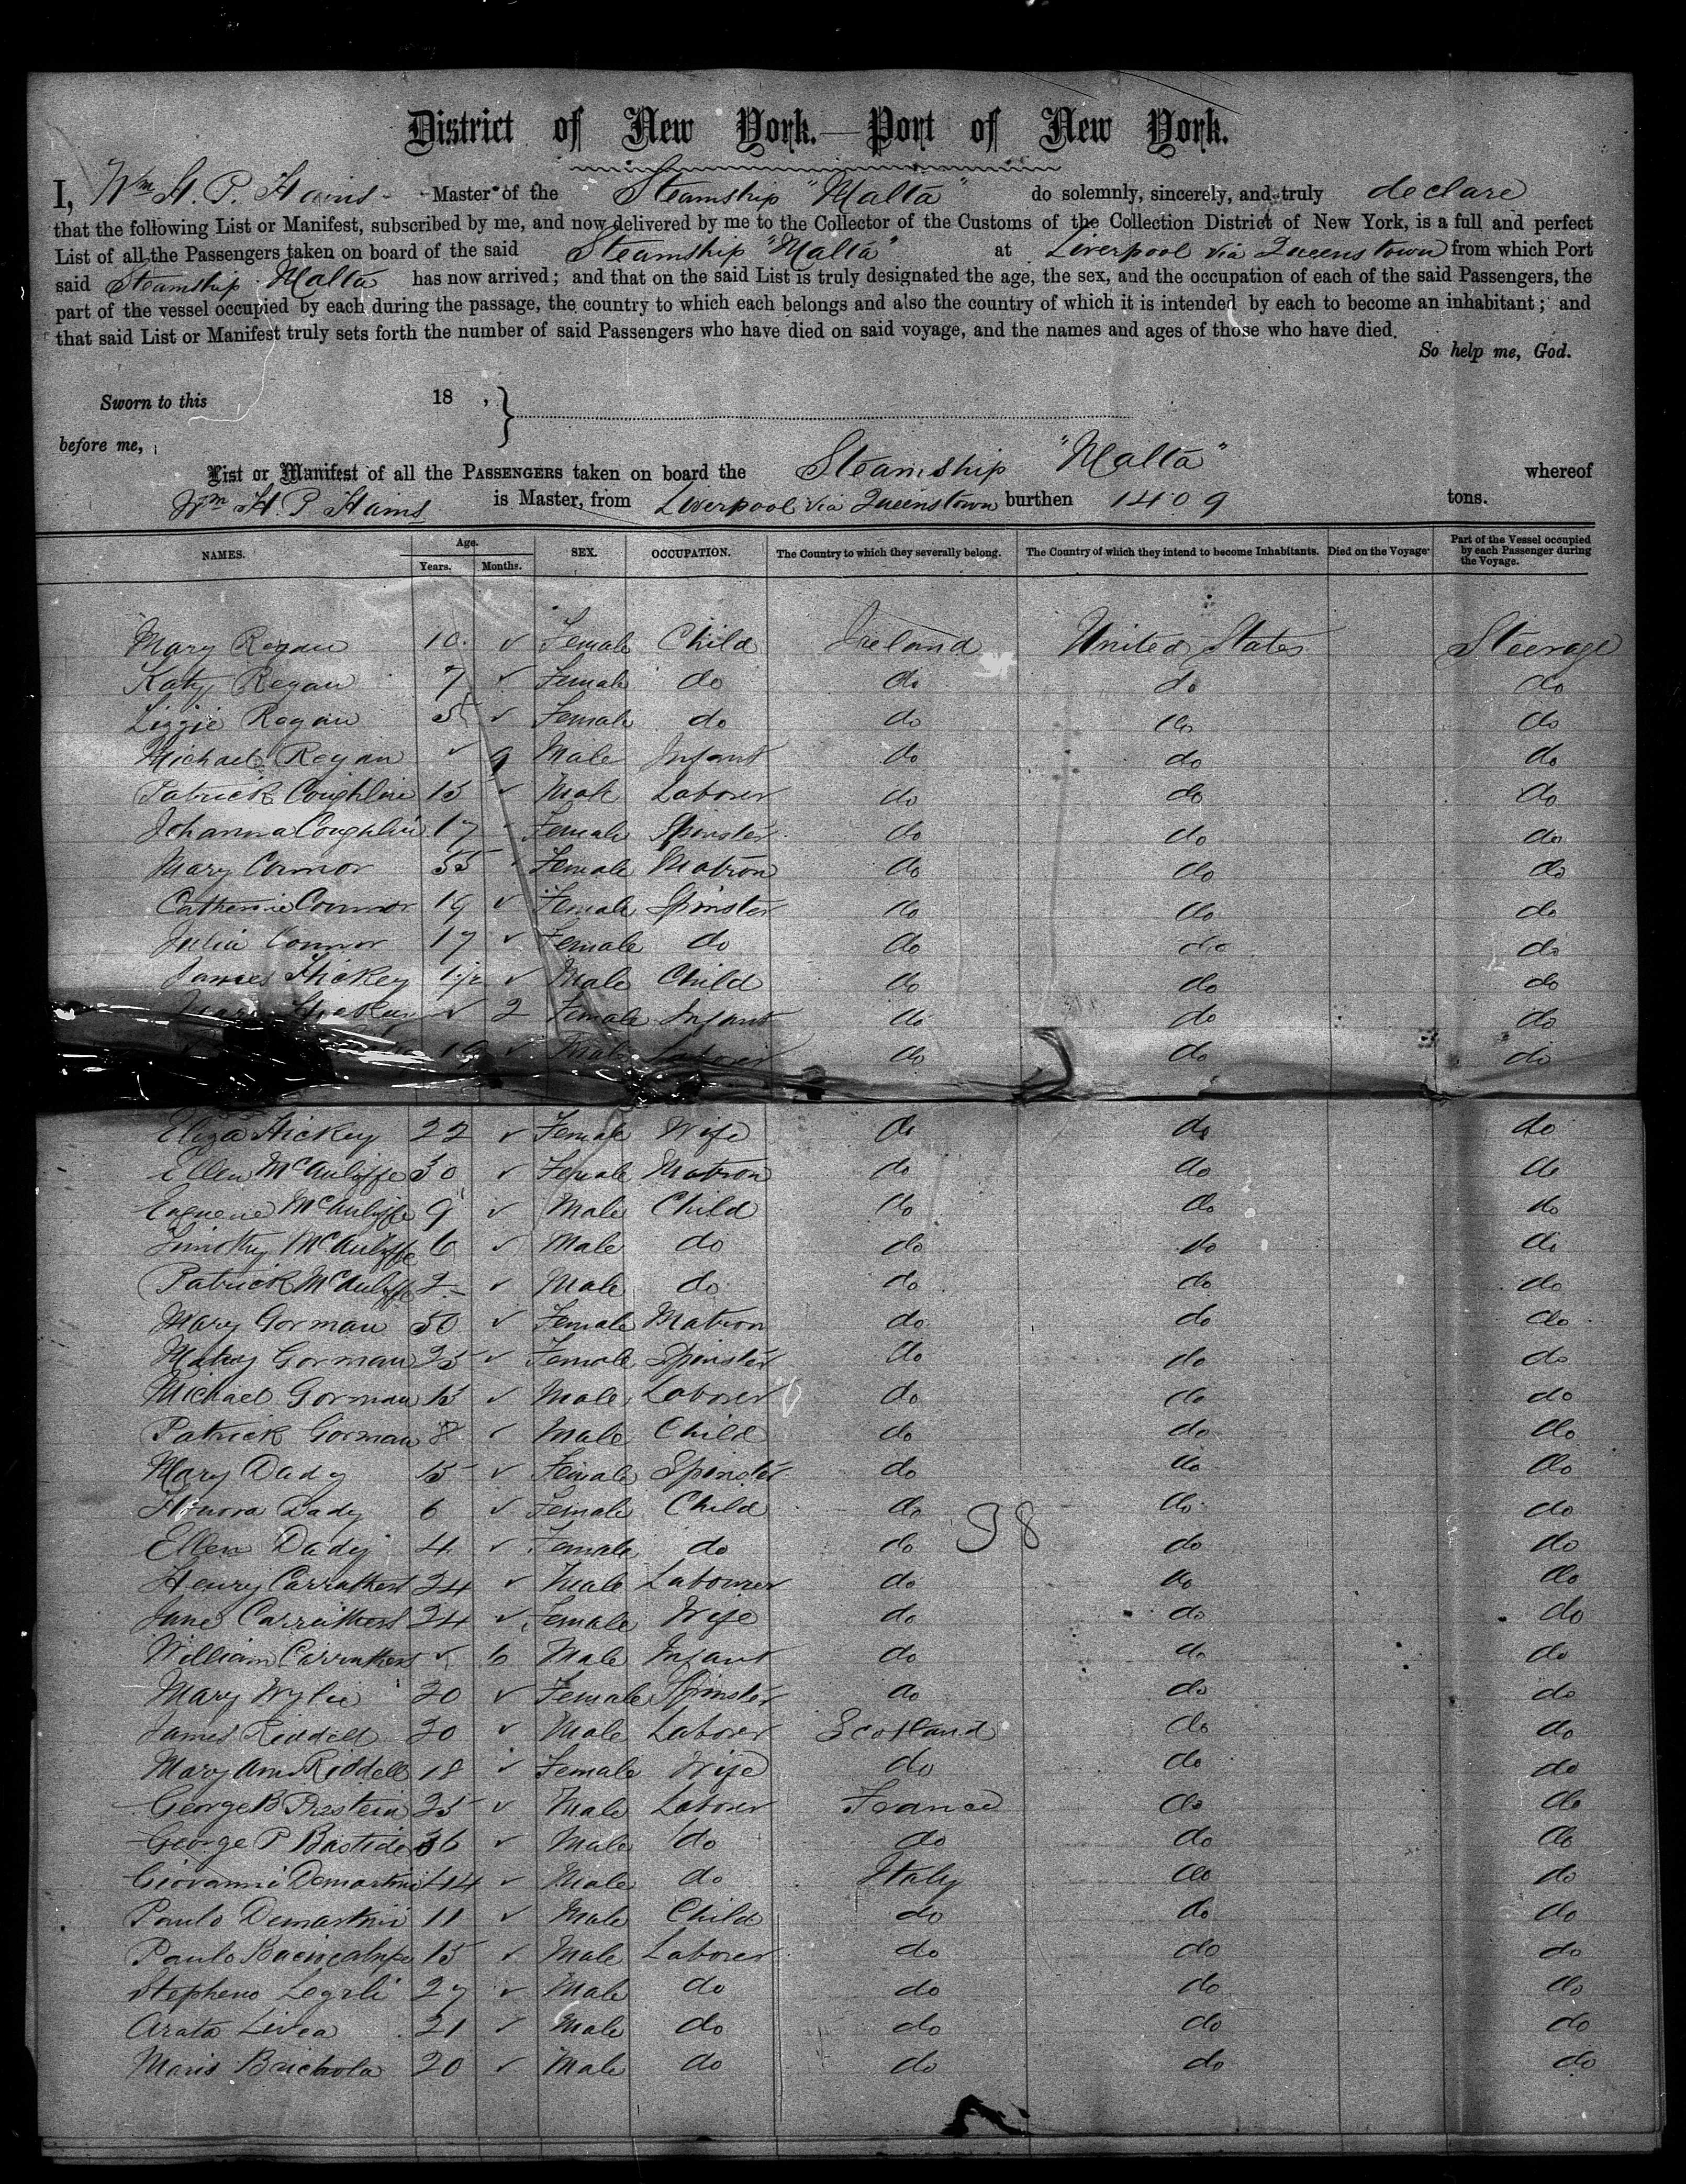 District of New York.—Port of New York.
I, Wm H. P. Hains Master of the Steamship "Malta" do solemnly, sincerely, and truly declare
that the following List or Manifest, subscribed by me, and now delivered by me to the Collector of the Customs of the Collection District of New York, is a full and perfect
List of all the Passengers taken on board of the said Steamship "Malta" at Liverpool via Queenstown from which Port
said Steamship Malta has now arrived; and that on the said List is truly designated the age, the sex, and the occupation of each of the said Passengers, the
part of the vessel occupied by each during the passage, the country to which each belongs and also the country of which it is intended by each to become an inhabitant; and
that said List or Manifest truly sets forth the number of said Passengers who have died on said voyage, and the names and ages of those who have died.
So help me, God.
Sworn to this 18 ,
before me,
List or Manifest of all the PASSENGERS taken on board the Steamship "Malta" whereof
Wm H. P Hains is Master, from Liverpool via Queenstown burthen 1409 tons.
NAMES. Age. Years. Months. SEX. OCCUPATION. The Country to which they severally belong. The Country of which they intend to become Inhabitants. Died on the Voyage Part of the Vessel occupied by each Passenger during the Voyage.
Mary Regan 10 ✓ Female Child Ireland United States Steerage
Katy Regan 7 ✓ Female do do do do
Lizzie Regan 5 ✓ Female do do do do
Michael Regan ✓ 9 Male Infant do do do
Patrick Coughlin 15 ✓ Male Laborer do do do
Johanna Coughlin 17 Female Spinster do do do
Mary Connor 55 Female Matron do do do
Catherine Connor 19 ✓ Female Spinster do do do
Julia Connor 17 ✓ Female do do do do
James Hickey 1½ ✓ Male Child do do do
Hickey ✓ 2 Female Infant do do do
19 ✓ Male Laborer do do do
Eliza Hickey 22 ✓ Female Wife do do do
Ellen McAuliffe 30 ✓ Female Matron do do do
Eugene McAuliffe 9 ✓ Male Child do do do
Timothy McAuliffe 6 ✓ Male do do do do
Patrick McAuliffe 2 ✓ Male do do do do
Mary Gorman 50 ✓ Female Matron do do do
Gorman 25 ✓ Female Spinster do do do
Michael Gorman 15 ✓ Male Laborer do do do
Patrick Gorman 8 ✓ Male Child do do do
Mary Dady 15 ✓ Female Spinster do do do
Honora Dady 6 ✓ Female Child do do do
98
Ellen Dady 4 ✓ Female do do do do
Henry Carruthers 24 ✓ Male Labourer do do do
Jane Carruthers 24 ✓ Female Wife do do do
William Carruthers ✓ 6 Male Infant do do do
Mary Wylie 20 ✓ Female Spinster do do do
James Riddell 20 ✓ Male Laborer Scotland do do
Mary Ann Riddell 18 ✓ Female Wife do do do
George B 25 ✓ Male Laborer France do do
George P Bastide 36 ✓ Male do do do do
Giovanni Demartini 44 ✓ Male do Italy do do
Paulo Demartini 11 ✓ Male Child do do do
Paulo 15 ✓ Male Laborer do do do
Stepheno 27 ✓ Male do do do do
Arata Livea 21 ✓ Male do do do do
Maris 20 ✓ Male do do do do